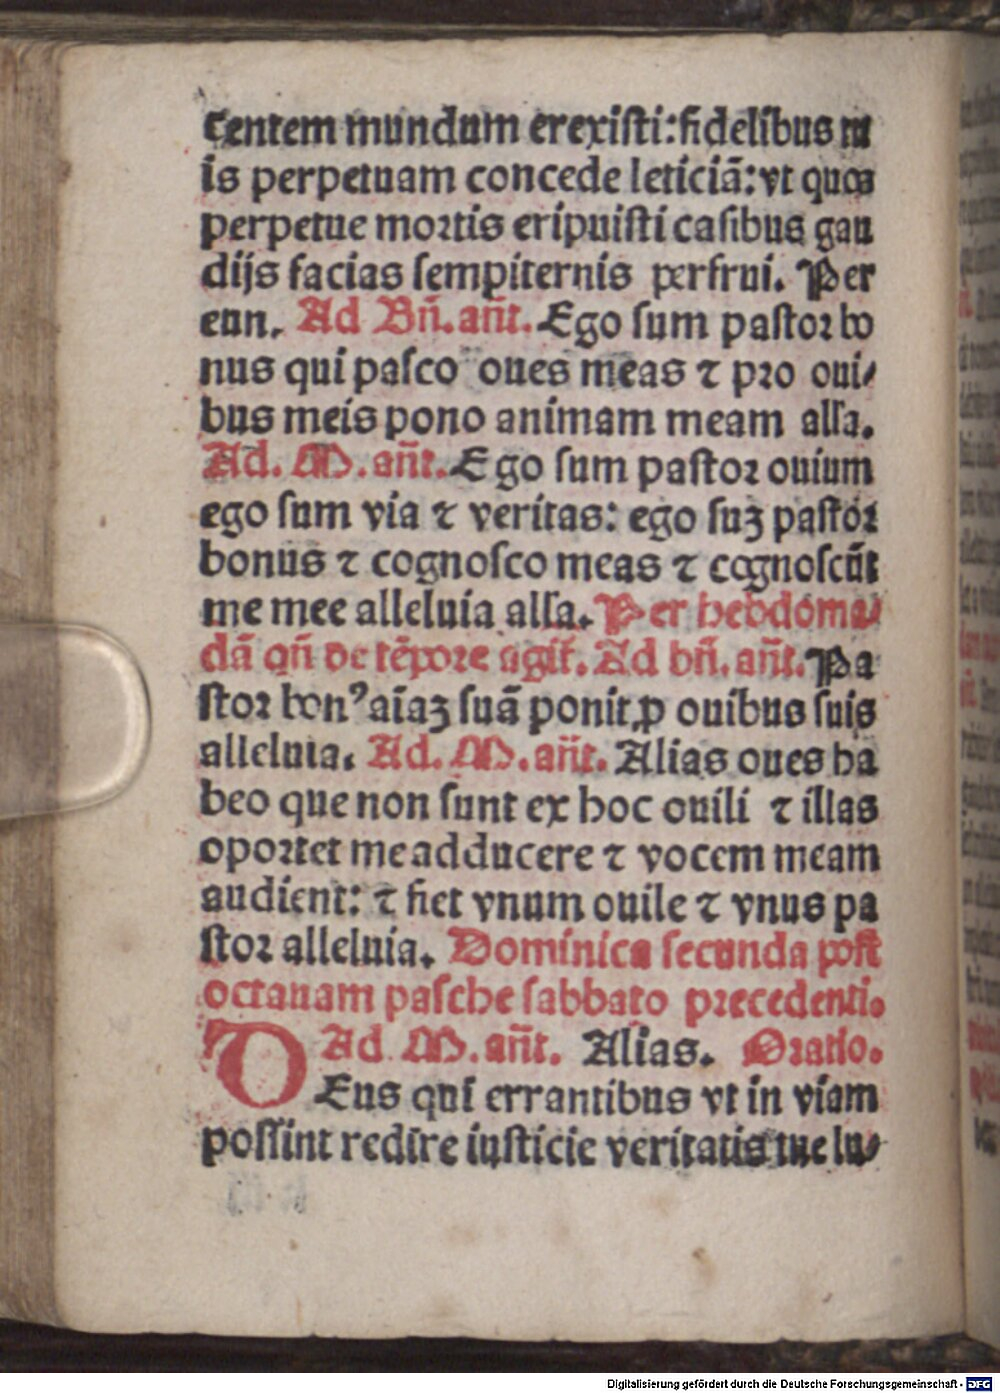 centem mundum erexisti: fidelibus tu
is perpetuam concede leticiā: vt quos
perpetue mortis eripuisti casibus gau
dijs facias sempiternis perfrui. Per
eun. Ad Bn̄. an̄t. Ego sum pastor bo
nus qui pasco oues meas ⁊ pro oui/
bus meis pono animam meam alla.
Ad. M. an̄t. Ego sum pastor ouium
ego sum via ⁊ veritas: ego suꝫ pastor
bonus ⁊ cognosco meas ⁊ cognoscūt
me mee alleluia alla. Per hebdoma/
dā qn̄ de tēpore agit̄. Ad bn̄. an̄t. Pa
stor bonꝰ aīaꝫ suā ponit ꝓ ouibus suis
alleluia. Ad. M. an̄t. Alias oues ha
beo que non sunt ex hoc ouili ⁊ illas
oportet me adducere ⁊ vocem meam
audient: ⁊ fiet vnum ouile ⁊ vnus pa
stor alleluia. Dominica secunda post
octauam pasche sabbato precedenti.
Ad M. an̄t. Alias. Oratio.
DEus qui errantibus vt in viam
possint redire iusticie veritatis tue lu/
Digitalisierung gefördert durch die Deutsche Forschungsgemeinschaft - DFG